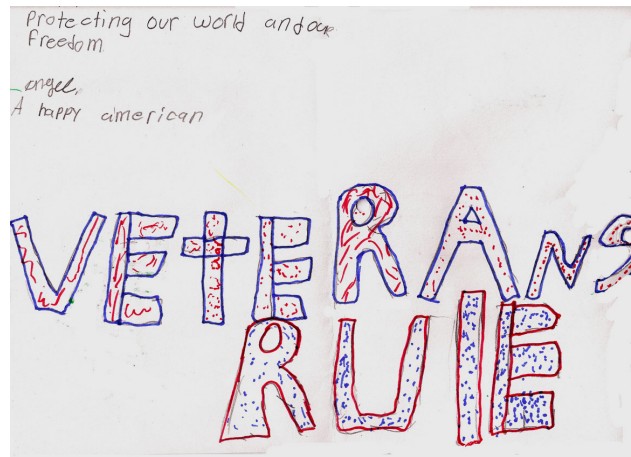 Protecting our world and our
freedom
angel,
A happy american
VEtERANS
RUlE